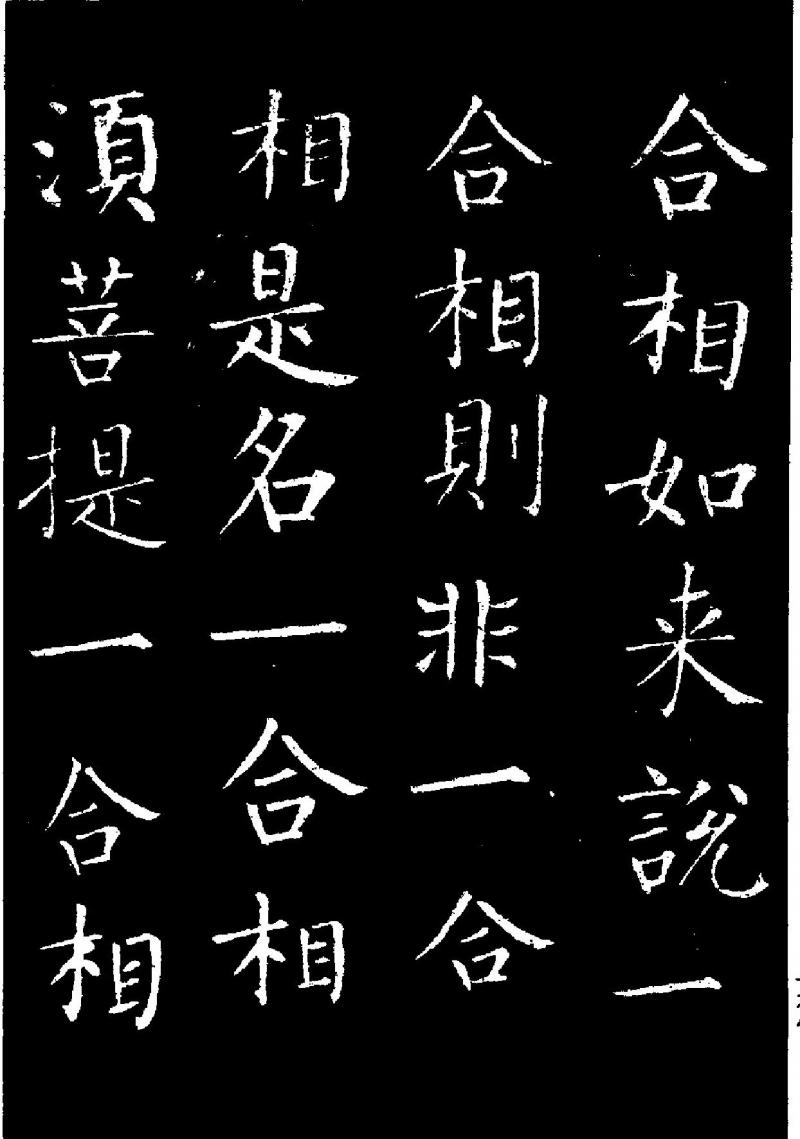 合相如来說一
合相則非一合
相是名一合相
須菩提一合相